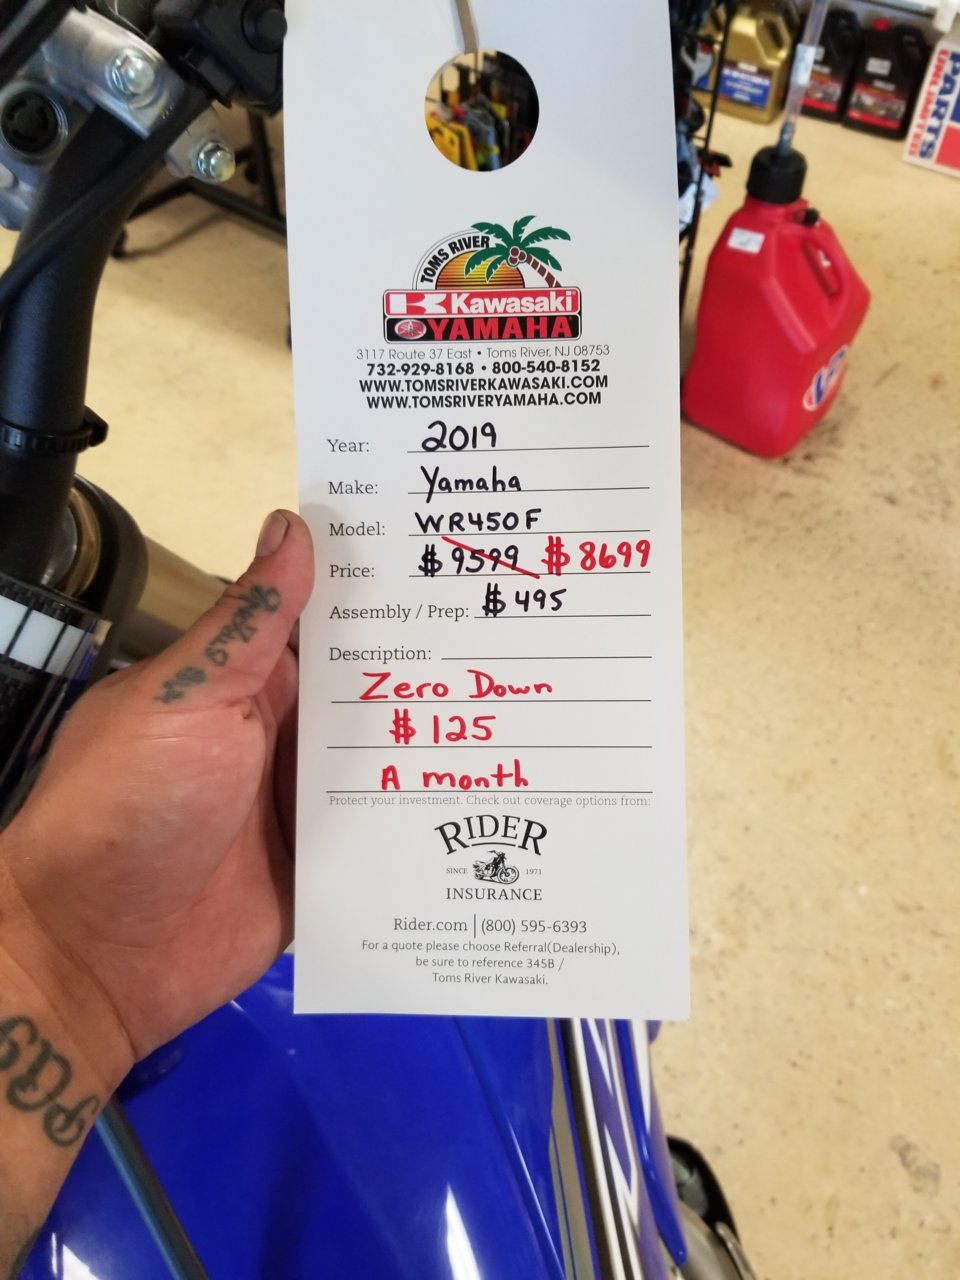 TOMS RIVER
Kawasaki
YAMAHA
3117 Route 37 East • Toms River, NJ 08753
732-929-8168 • 800-540-8152
WWW.TOMSRIVERKAWASAKI.COM
WWW.TOMSRIVERYAMAHA.COM
Year: 2019
Make: Yamaha
Model: WR450F
Price: $9599 $8699
Assembly / Prep: $495
Description:
Zero Down
$125
A month
Protect your investment. Check out coverage options from:
RIDER
SINCE 1971
INSURANCE
Rider.com | (800) 595-6393
For a quote please choose Referral(Dealership),
be sure to reference 345B /
Toms River Kawasaki.
PARTS
UNLIMITED